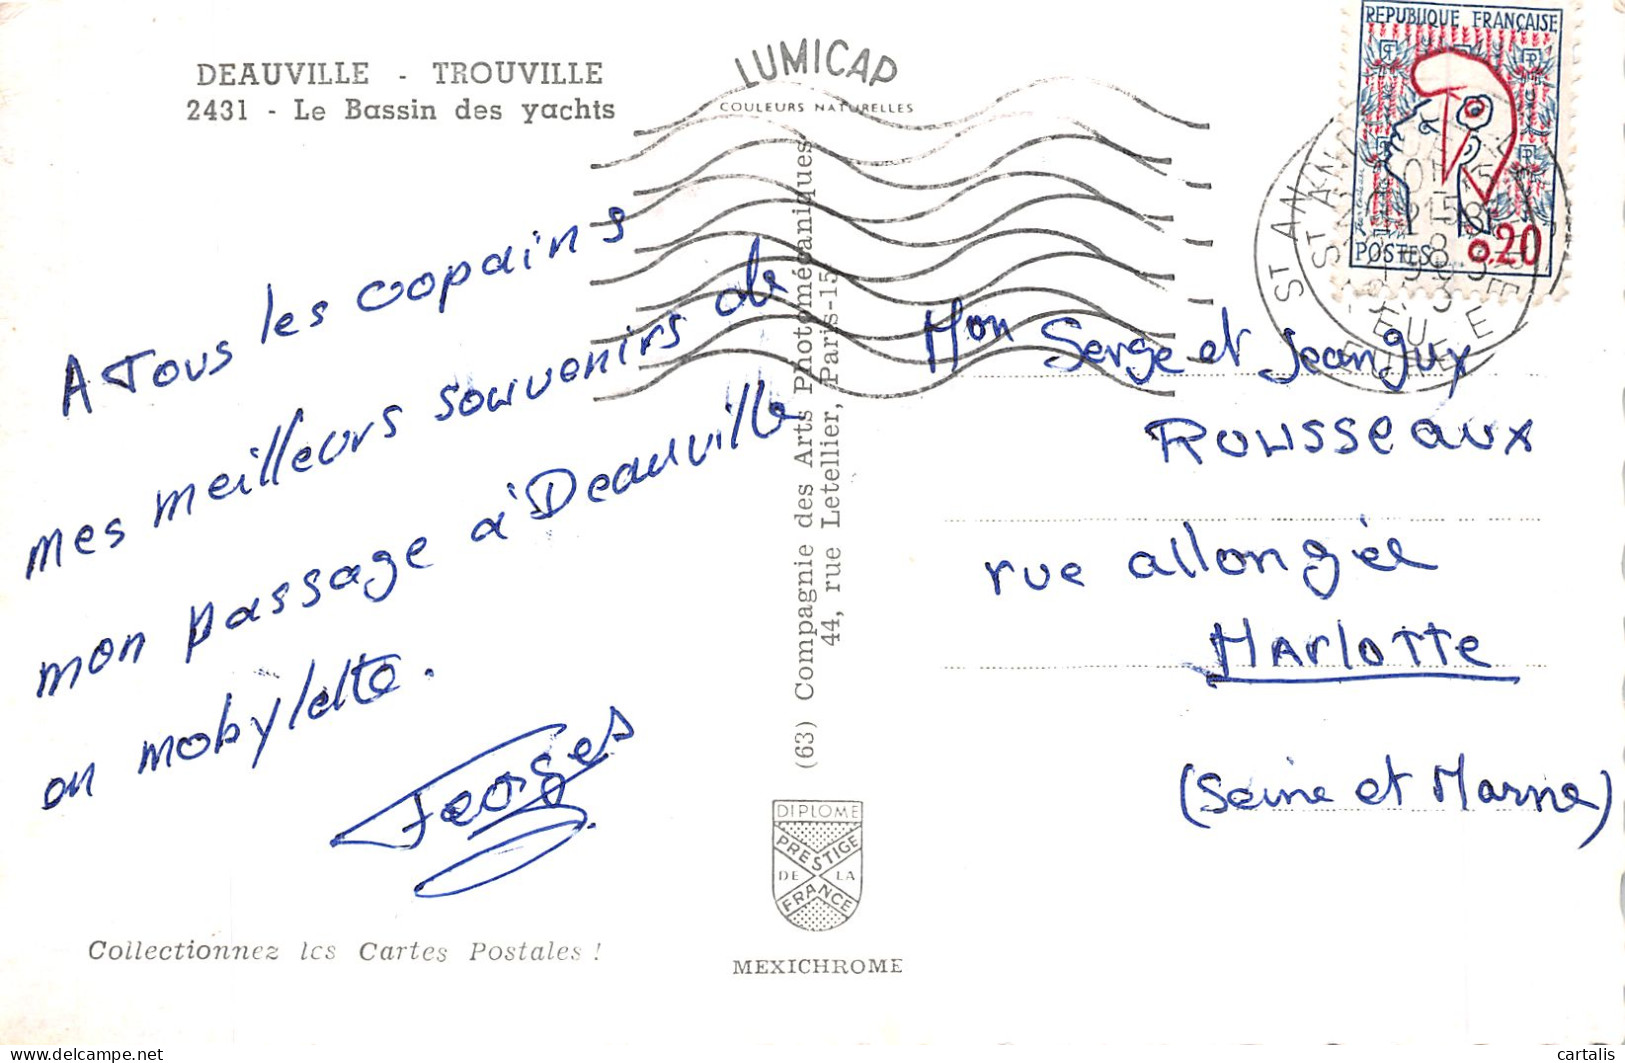 DEAUVILLE - TROUVILLE
2431 - Le Bassin des yachts
LUMICAP
COULEURS NATURELLES
REPUBLIQUE FRANÇAISE
POSTES 0,20
ST AN
EURE
A Tous les copains
mes meilleurs souvenirs de
mon passage à Deauville
en mobylette.
Georges
(63) Compagnie des Arts Photomécaniques
44, rue Letellier, Paris-15
Mon Serge et Jean guy
ROUSSEAUX
rue allongée
MARLOTTE
(Seine et Marne)
DIPLOME
PRESTIGE
DE LA
FRANCE
Collectionnez les Cartes Postales !
MEXICHROME
delcampe.net
cartalis